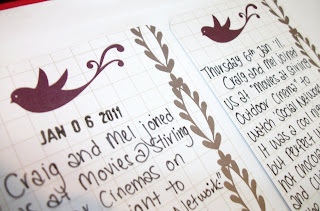 JAN 0 6 2011
Craig and Mel joined
us at movies@stirling
Cinemas on
night to
Network"
Thursday 6th Jan '11
Craig and Mel joined
us at "movies at stirling
Outdoor Cinema" to
watch 'Social Network
It was a cool nig
but perfect
hot chocola
and cu